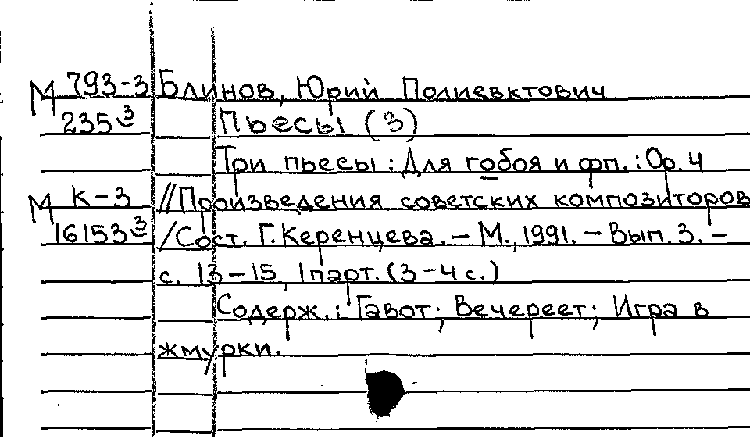 М 793-3 Блинов, Юрий Полиевктович
235³ Пьесы (3)
Три пьесы : Для гобоя и фп. : Ор. 4
М К-3 //Произведения советских композиторов
16153³ /Сост. Г. Керенцева. – М., 1991. – Вып. 3. –
с. 13-15, 1 парт. (3-4 с.)
Содерж.: Гавот; Вечереет; Игра в
жмурки.